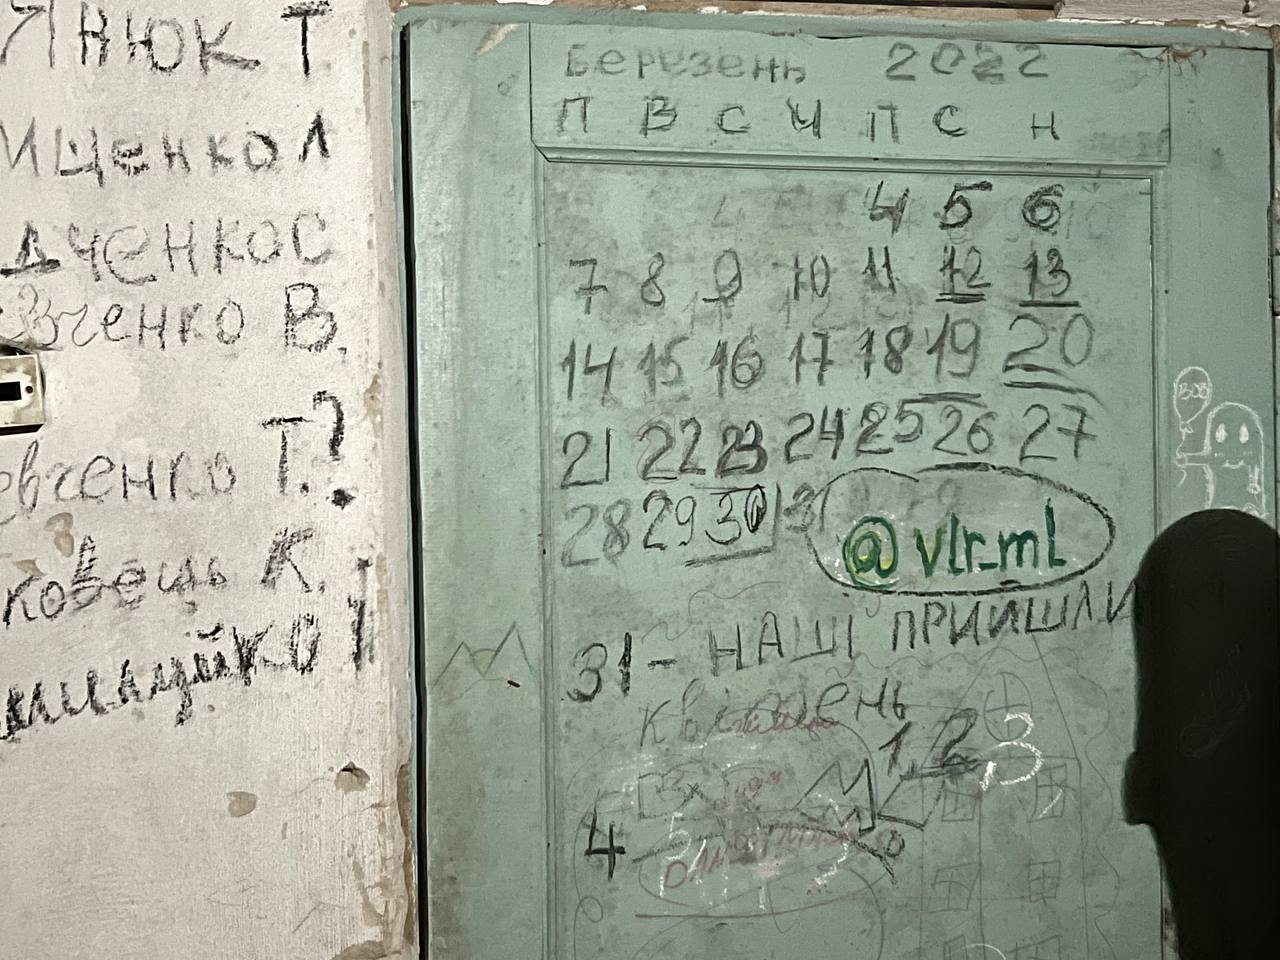 ЯНЮК Т.
ИЩенко Л
дченко С
евченко В.
Т.?
евченко
ковець К.
!
Березень 2022
П В С Ч П С Н
4 5 6
7 8 9 10 11 12 13
14 15 16 17 18 19 20
21 22 23 24 25 26 27
28 29 30 31
@vlr_ml
31 - НАШІ ПРИЙШЛИ
квітень
1, 2, 3,
4
BOB